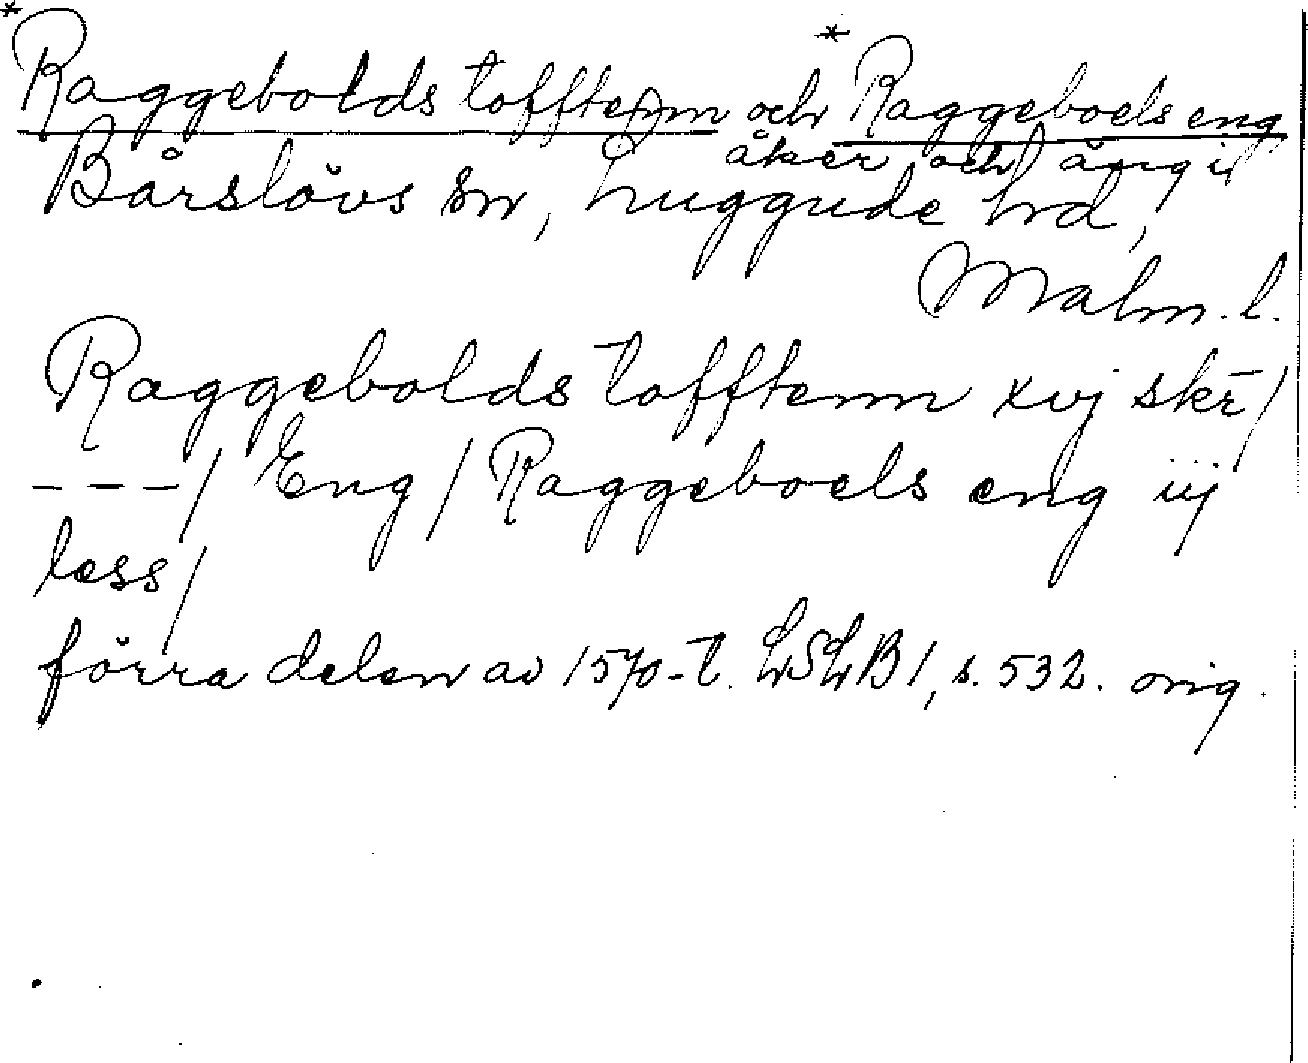 *Raggebolds tofftenn och *Raggeboels eng
åker och äng i
Bårslövs sn, Luggude hd,
Malm. l.
Raggebolds tofftenn xvj skr̄/
---/ Eng / Raggeboels eng iij
less/
förra delen av 1570-t. LSLB 1, s. 532. orig.